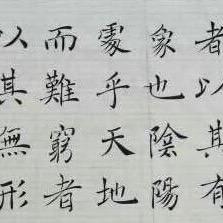 者以其有
象也陰陽
處乎天地
而難窮者
以其無形